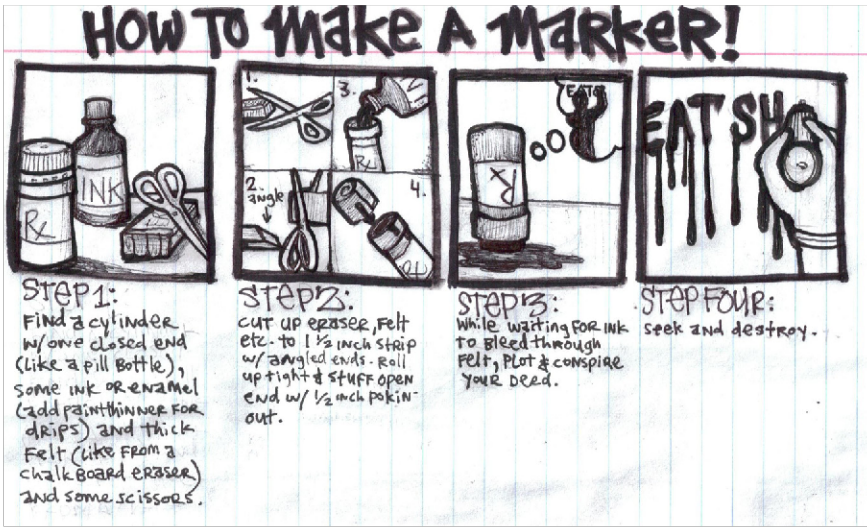 HOW TO MAKE A MARKER!
Rx
INK
1.
2.
angle
3.
Rx
4.
Rx
Rx
EAT S
EAT SH
STEP 1:
Find a cylinder
w/one closed end
(Like a pill Bottle),
some ink or enamel
(add paint thinner for
drips) and thick
felt (like from a
chalk Board eraser)
and some scissors.
STEP 2:
cut up eraser, felt
etc. to 1 1/2 inch strip
w/ angled ends. Roll
up tight & stuff open
end w/ 1/2 inch pokin-
out.
STEP 3:
While waiting for ink
to Bleed through
Felt, Plot & conspire
your Deed.
STEP FOUR:
seek and destroy.